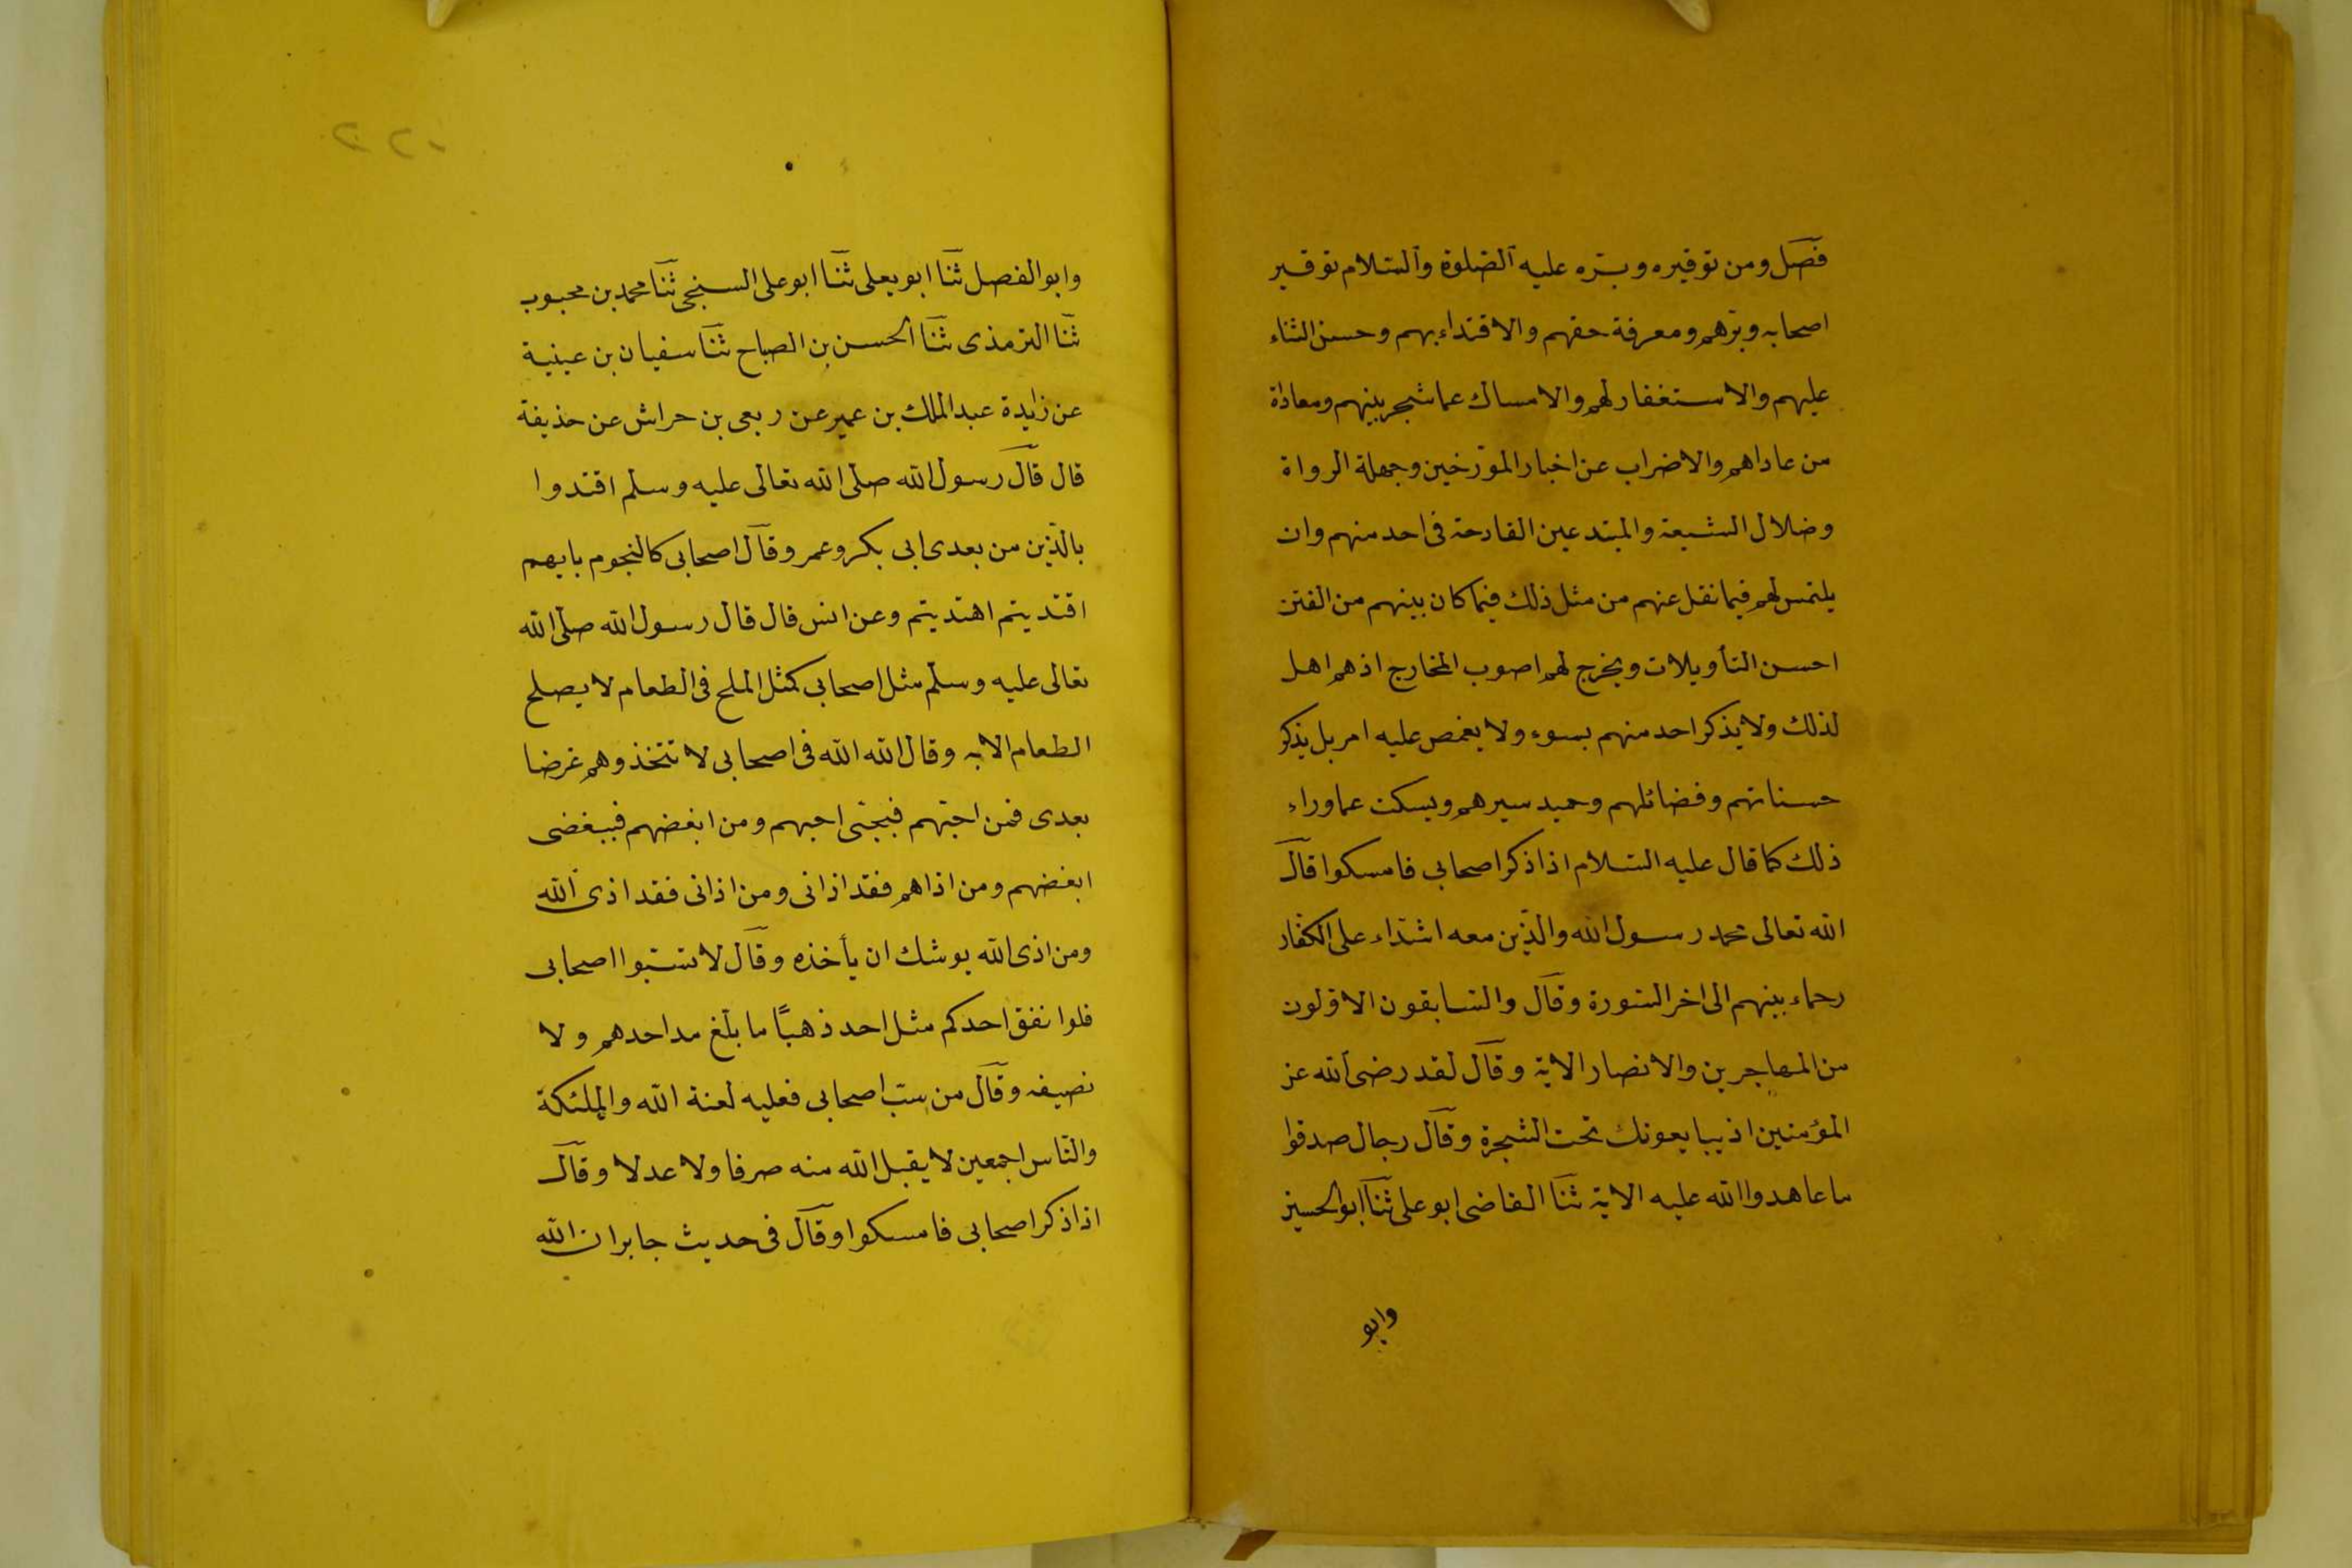 فصل ومن توقيره وبره عليه الصلوة والسلام توقير
اصحابه وبرهم ومعرفة حقهم والاقتداء بهم وحسن الثناء
عليهم والاستغفار لهم والامساك عما شجر بينهم ومعاداة
من عاداهم والاضراب عن اخبار المورخين وجهلة الرواة
وضلال الشيعة والمبتدعين القادحة فى احد منهم وان
يلتمس لهم فيما نقل عنهم من مثل ذلك فيما كان بينهم من الفتن
احسن التأويلات ويخرج لهم اصوب المخارج اذهم اهل
لذلك ولا يذكر احد منهم بسوء ولا يغمص عليه امر بل يذكر
حسناتهم وفضائلهم وحميد سيرهم ويسكت عما وراء
ذلك كما قال عليه السلام اذا ذكر اصحابى فامسكوا قال
الله تعالى محمد رسول الله والذين معه اشداء على الكفار
رحماء بينهم الى اخر السورة وقال والسابقون الاولون
من المهاجرين والانصار الاية وقال لقد رضى الله عن
المؤمنين اذ يبايعونك تحت الشجرة وقال رجال صدقوا
ما عاهدوا الله عليه الاية ثنا القاضى ابو على ثنا ابو الحسين
وابو
وابو الفصل ثنا ابو يعلى ثنا ابو على السنجى ثنا محمد بن محبوب
ثنا الترمذى ثنا الحسن بن الصباح ثنا سفيان بن عينية
عن زايدة عبد الملك بن عمير عن ربعى بن حراش عن حذيفة
قال قال رسول الله صلى الله تعالى عليه وسلم اقتدوا
بالذين من بعدى ابى بكر وعمر وقال اصحابى كالنجوم بايهم
اقتديتم اهتديتم وعن انس قال قال رسول الله صلى الله
تعالى عليه وسلم مثل اصحابى كمثل الملح فى الطعام لا يصلح
الطعام الا به وقال الله الله فى اصحابى لا تتخذوهم غرضا
بعدى فمن احبهم فبحبى احبهم ومن ابغضهم فببغضى
ابغضهم ومن اذاهم فقد اذانى ومن اذانى فقد اذى الله
ومن اذى الله يوشك ان يأخذه وقال لا تسبوا اصحابى
فلو انفق احدكم مثل احد ذهبًا ما بلغ مد احدهم ولا
نصيفه وقال من سب اصحابى فعليه لعنة الله والملئكة
والناس اجمعين لا يقبل الله منه صرفا ولا عدلا وقال
اذا ذكر اصحابى فامسكوا وقال فى حديث جابر ان الله